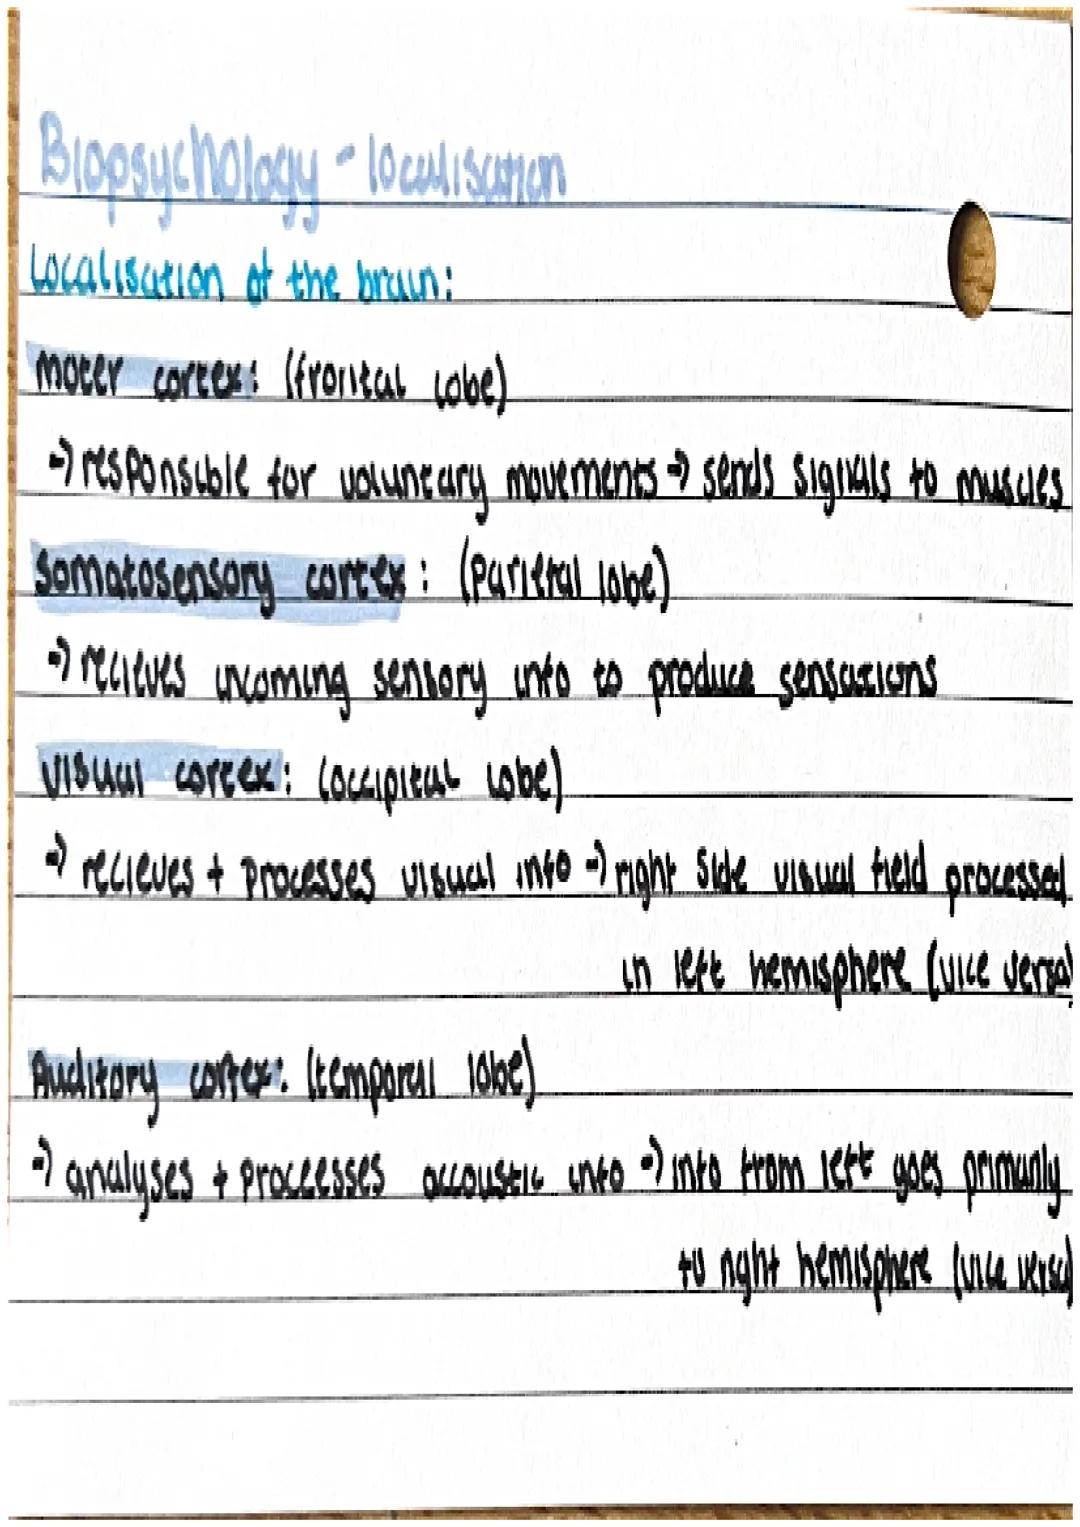 Biopsychology - localisation
Localisation of the brain:
moter cortex: (frontal lobe)
→ responsible for voluntary movements → sends signals to muscles
Somatosensory cortex: (parietal lobe)
→ recieves incoming sensory info to produce sensations
Visual cortex: (occipital lobe)
→ recieves + processes visual info → right side visual field processed
in left hemisphere (vice versa)
Auditory cortex: (temporal lobe)
→ analyses + proccesses accoustic info → info from left goes primarily
to right hemisphere (vice versa)